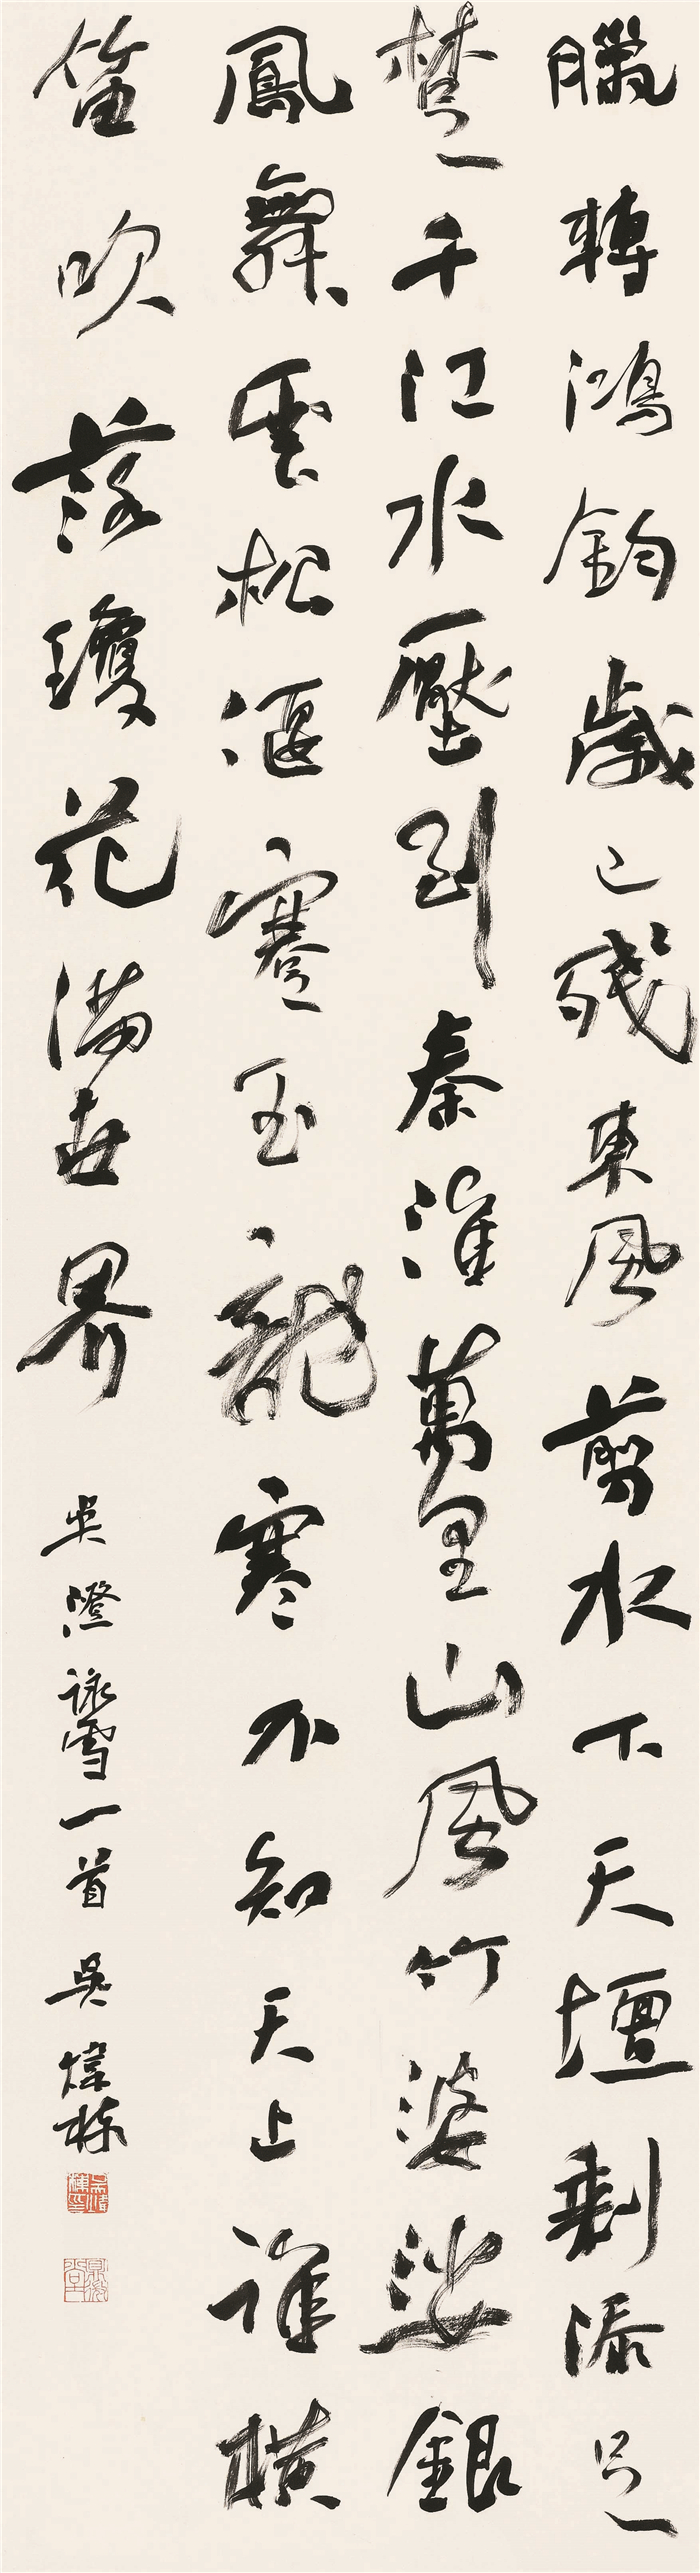 臘轉鴻鈞歲已殘東風翦水下天壇剩添吳
楚千江水壓到秦淮萬里山風竹婆娑銀
鳳舞雲松偃蹇玉龍寒不知天上誰橫
笛吹落瓊花滿世界 吳澄詠雪一首 吳